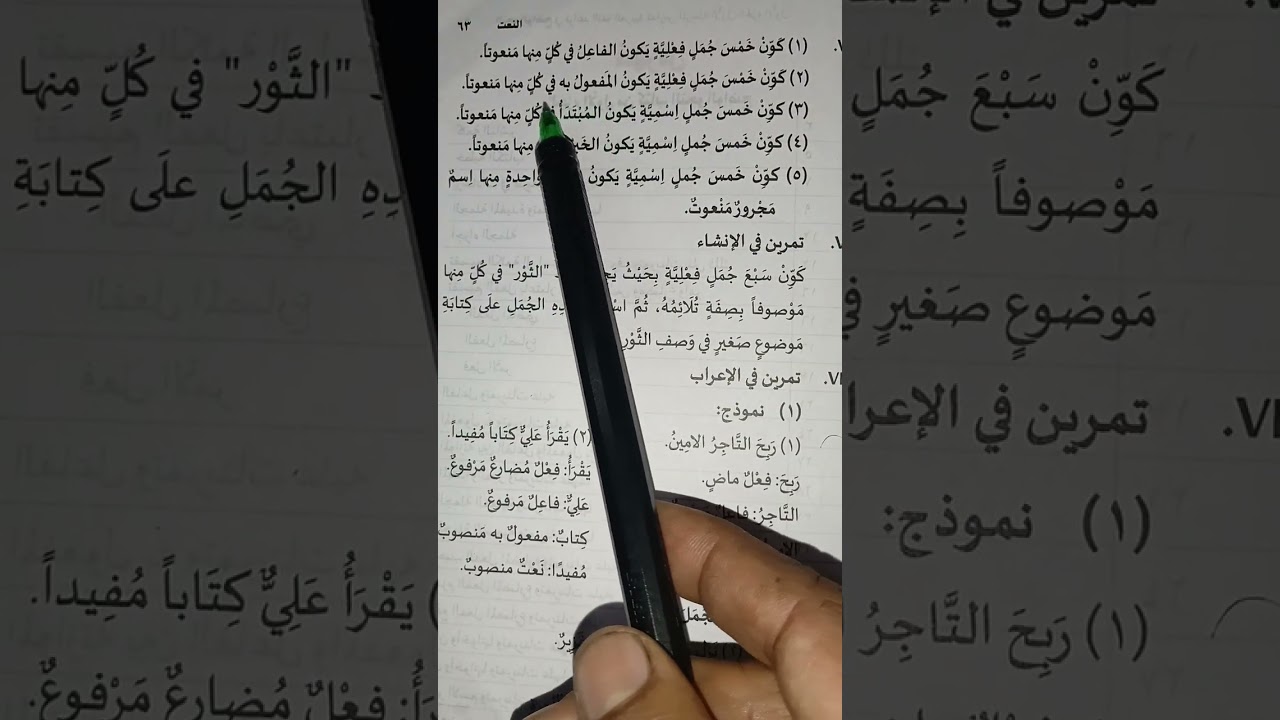 النعت ٦٣
(١) كَوِّنْ خَمْسَ جُمَلٍ فِعْلِيَّةٍ يَكونُ الفاعِلُ في كُلٍّ مِنها مَنعوتاً.
(٢) كَوِّنْ خَمْسَ جُمَلٍ فِعْلِيَّةٍ يَكونُ المَفعولُ به في كُلٍّ مِنها مَنعوتاً.
(٣) كوِّنْ خَمسَ جُملٍ اِسْمِيَّةٍ يَكونُ المُبْتَدَأُ كُلٍّ منها مَنعوتاً.
(٤) كوِّنْ خَمسَ جُملٍ اِسْمِيَّةٍ يَكونُ مِنها مَنعوتاً.
(٥) كوِّنْ خَمسَ جُملٍ اِسْمِيَّةٍ يَكونُ واحِدةٍ مِنها اِسمٌ
مَجْرورٌ مَنْعوتٌ.
تمرين في الإنشاء
كَوِّنْ سَبْعَ جُمَلٍ فِعْلِيَّةٍ بِحَيْثُ "الثَّوْر" في كُلٍّ مِنها
مَوْصوفاً بِصِفَةٍ تُلَائِمُهُ، ثُمَّ الجُمَلِ علَى كِتابَةِ
مَوضوعٍ صَغيرٍ في وَصفِ الثَّوْرِ
VI. تمرين في الإعراب
(١) نموذج:
(١) رَبِحَ التَّاجِرُ الامِينُ. (٢) يَقْرَأُ عَلِيٌّ كِتَاباً مُفِيداً.
رَبِحَ: فِعْلٌ ماضٍ. يَقْرَأُ: فِعْلٌ مُضارِعٌ مَرْفوعٌ.
التَّاجِرُ: عَلِيٌّ: فاعِلٌ مَرفوعٌ.
كِتابٌ: مفعولٌ به مَنصوبٌ
مُفيدًا: نَعْتٌ منصوبٌ.